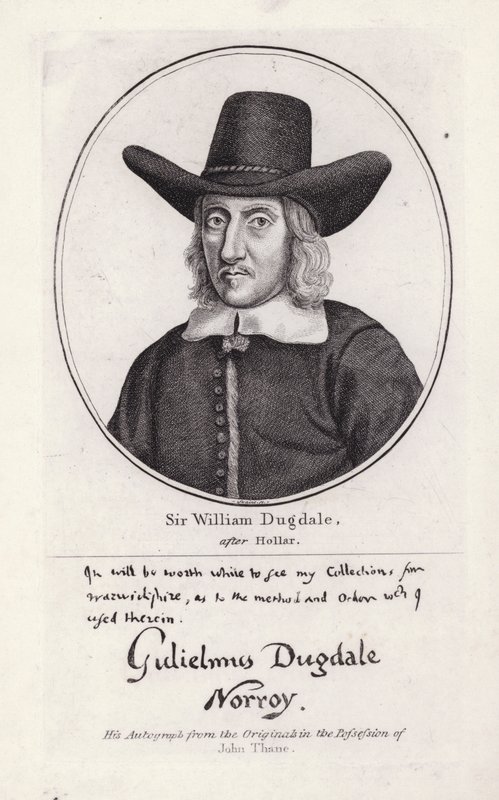 Sir William Dugdale,
after Hollar.
It will be worth while to see my Collections for
Warwickshire, as to the method and Order wch I
used therein.
Gulielmus Dugdale
Norroy.
His Autograph from the Originals in the Poſseſsion of
John Thane.